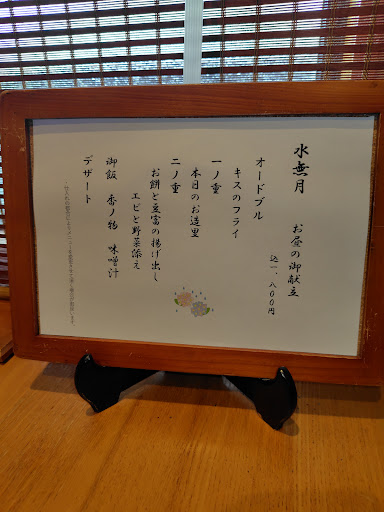 水無月
お昼の御献立
込一、八〇〇円
オードブル
キスのフライ
一ノ重
本日のお造里
二ノ重
お餅と豆富の揚げ出し
エビと野菜添え
御飯 香ノ物 味噌汁
デザート